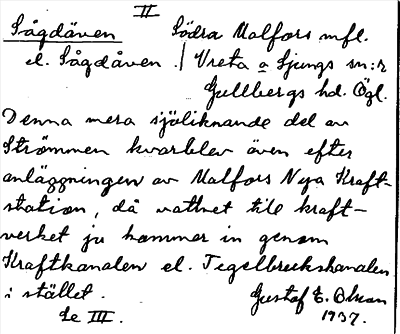 II
Sågdäven Södra Malfors mfl.
el. Sågdåven. / Vreta o Ljungs sn:r
Gullbergs hd. Ögl.
Denna mera sjöliknande del av
Strömmen kvarblev även efter
anläggningen av Malfors Nya Kraft-
station, då vattnet till kraft-
verket ju kommer in genom
Kraftkanalen el. Tegelbrukskanalen
i stället. Gustaf E. Olsson
Se III. 1937.